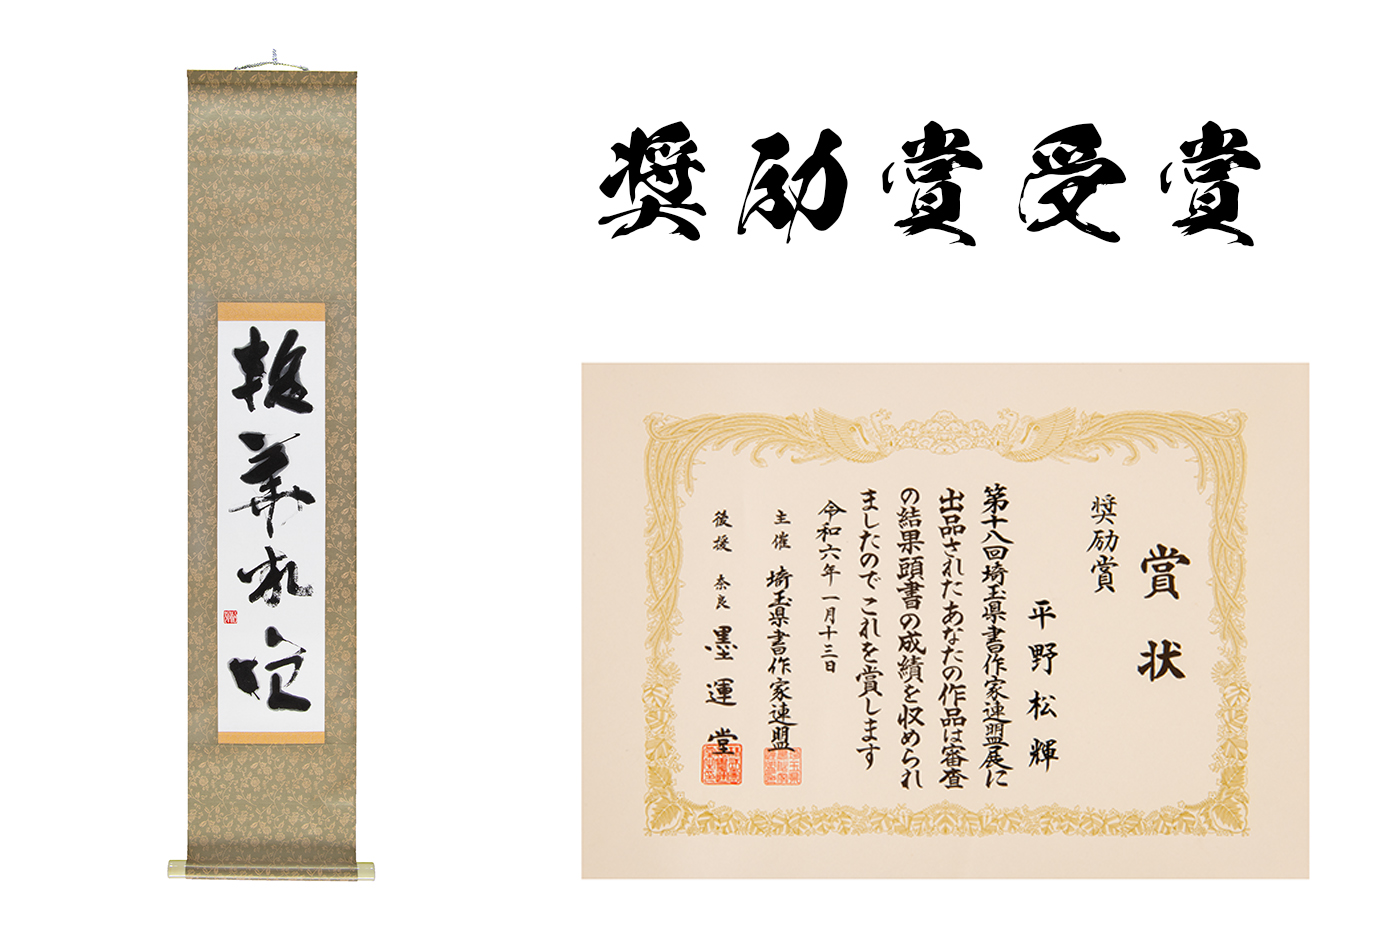 奨励賞受賞
賞状
奨励賞
平野松輝
第十八回埼玉県書作家連盟展に
出品されたあなたの作品は審査
の結果頭書の成績を収められ
ましたのでこれを賞します
令和六年一月十三日
主催 埼玉県書作家連盟
後援 奈良 墨運堂